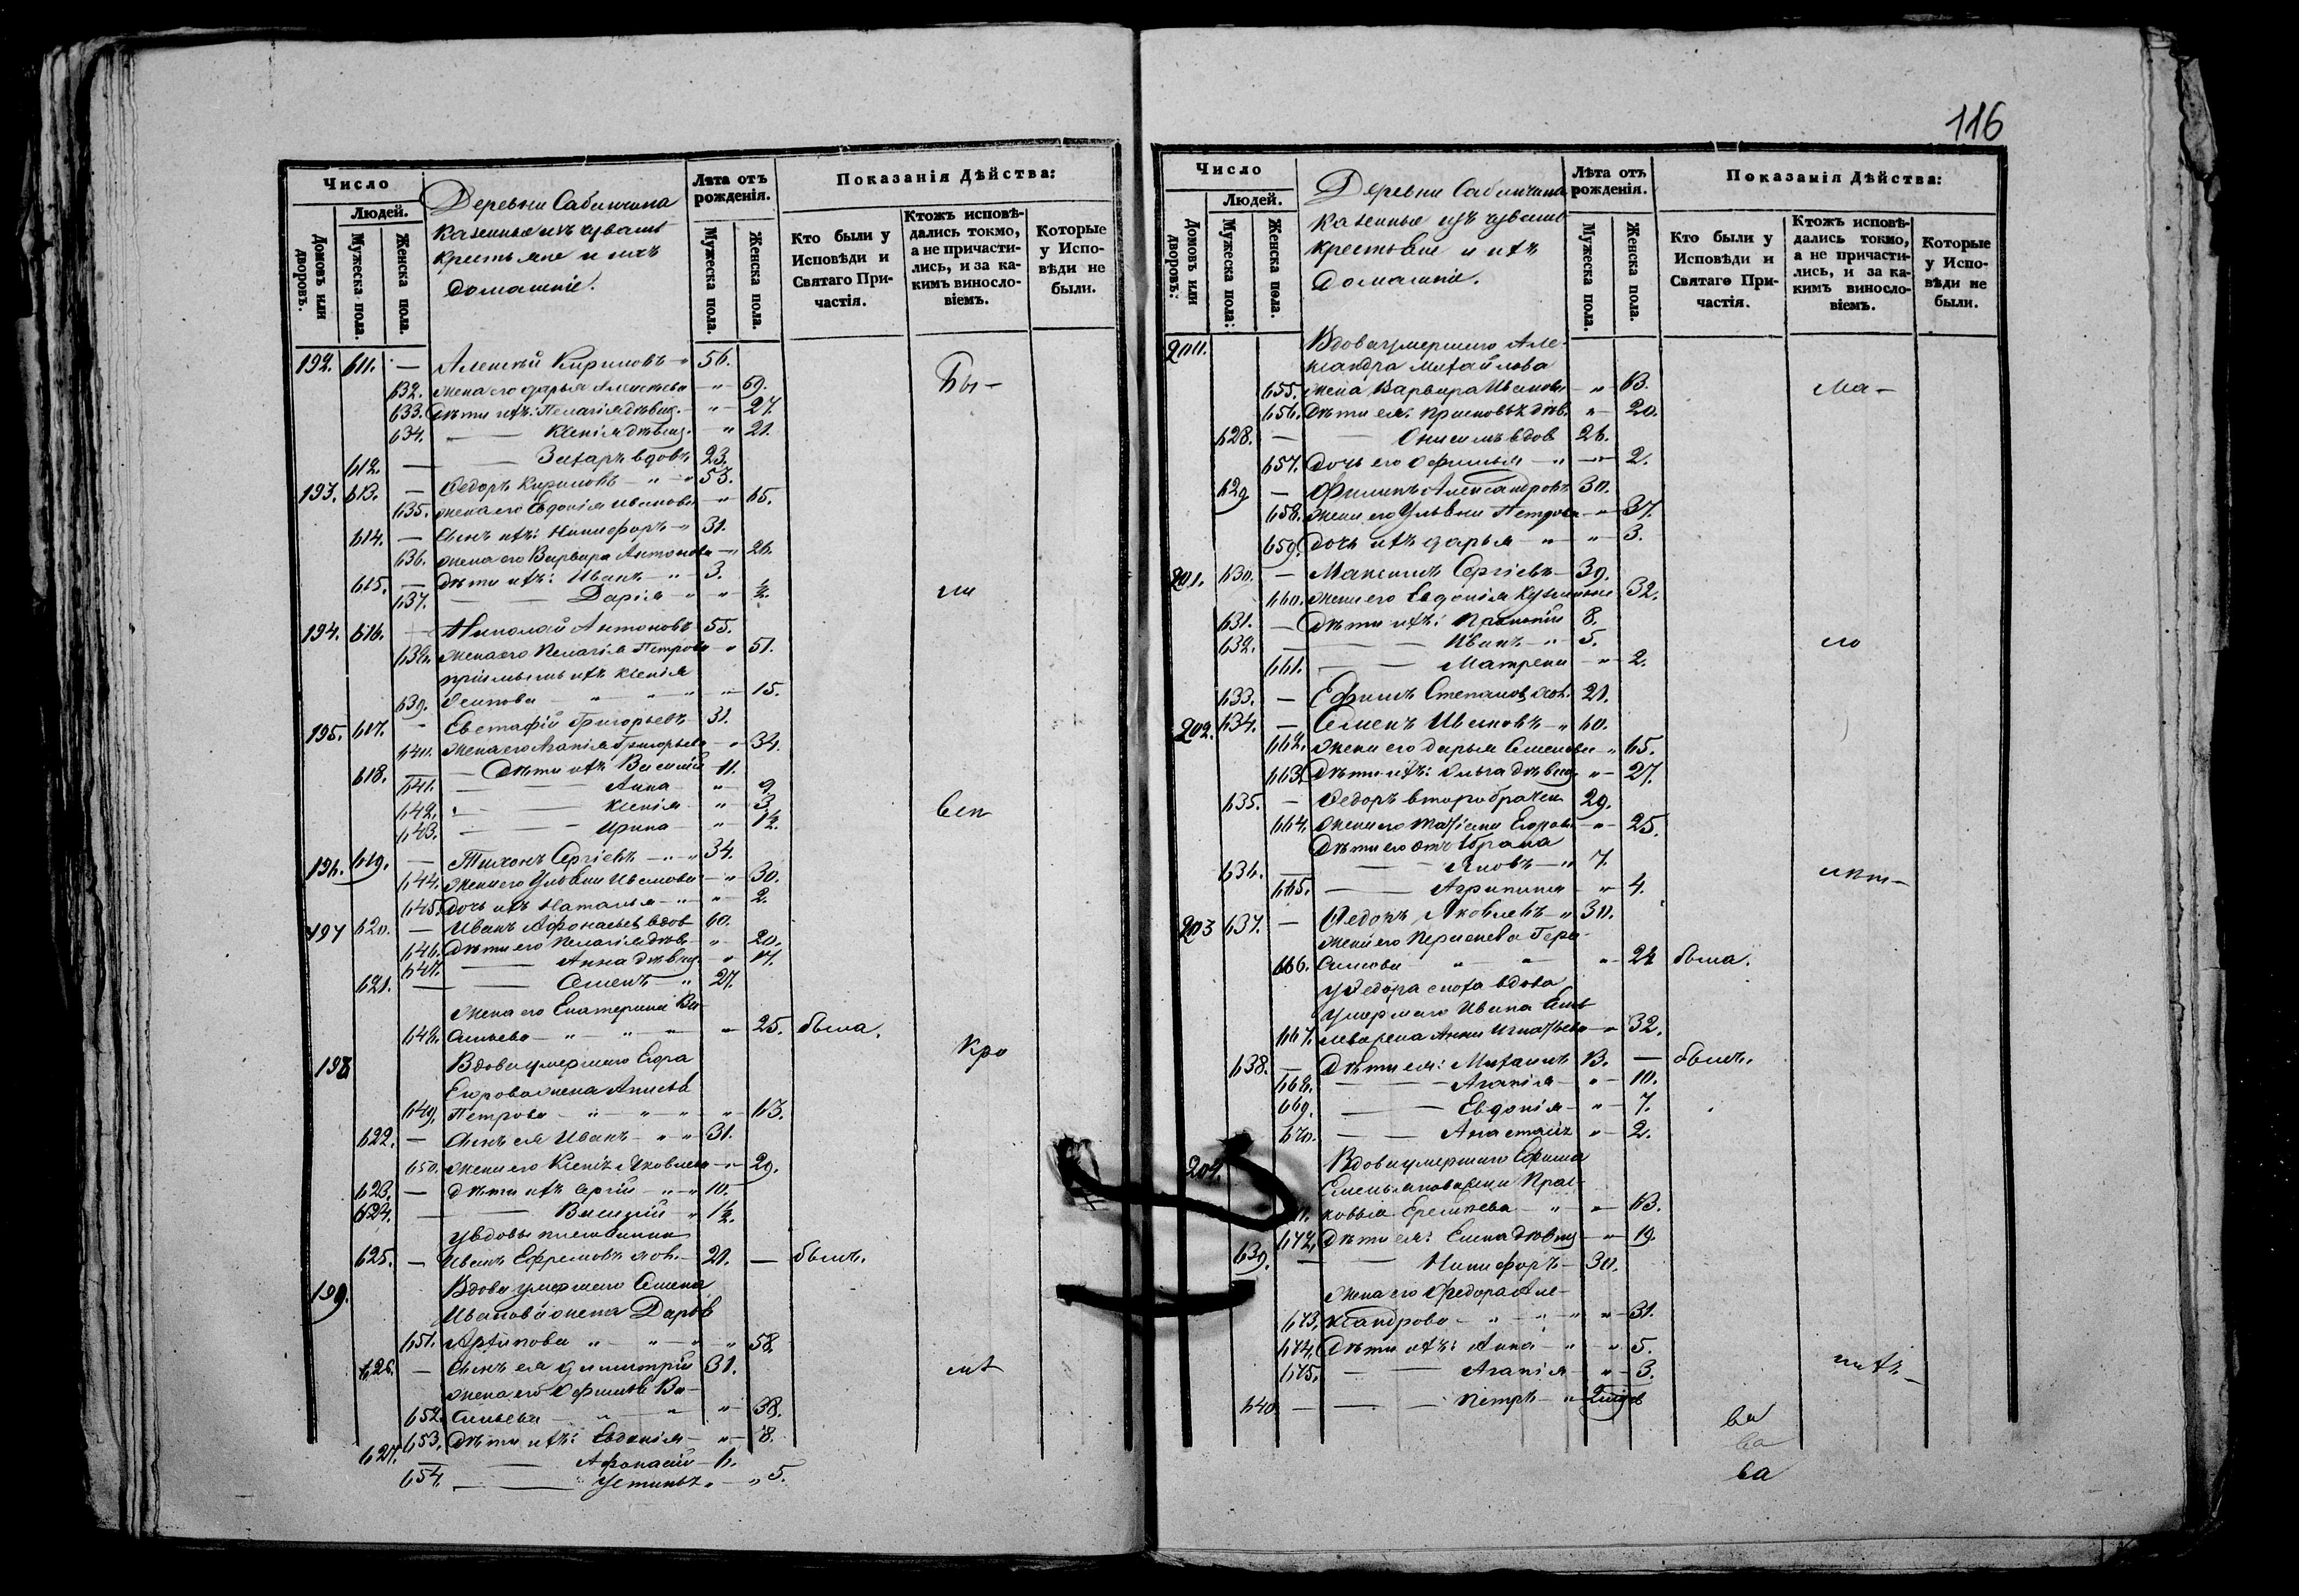 116
Число
Людей.
Домовъ или дворовъ.
Мужеска пола.
Женска пола.
Деревни Сабанчина
казенные изъ чувашъ
крестьяне и ихъ
домашніе.
Лѣта отъ рожденія.
Мужеска пола.
Женска пола.
Показанія Дѣйства:
Кто были у Исповѣди и Святаго Причастія.
Ктожъ исповѣдались токмо, а не причастились, и за какимъ винословіемъ.
Которые у Исповѣди не были.
192. 611. — Алексѣй Кириловъ 56.
632. жена его Дарья Алексѣева — 69. Бы-
633. Дѣти ихъ: Пелагія дѣвиц. — 27.
634. — Ксенія дѣвиц. — 21.
612. — Захаръ вдовъ 23.
193. 613. — Ѳедоръ Кириловъ 53.
635. жена его Евдокія Иванова — 65.
614. — Сынъ ихъ: Никифоръ 31.
636. жена его Варвара Антонова — 26.
615. — Дѣти ихъ: Иванъ 3.
637. — Дарія — ½. ли
194. 616. — Николай Антоновъ 55.
638. жена его Пелагія Петрова — 51.
пріимышъ ихъ Ксенія
639. Осипова — 15.
195. 617. — Евстафій Григорьевъ 31.
640. жена его Агапія Григорьева — 34.
618. — Дѣти ихъ Василій 11.
641. — Анна — 9.
642. — Ксенія — 3. всп
643. — Ирина — 1½.
196. 619. — Тихонъ Сергіевъ 34.
644. жена его Ульяна Иванова — 30.
645. дочь ихъ Наталья — 2.
197 620. — Иванъ Афонасьевъ вдов 60.
646. Дѣти его Пелагія дѣв. — 20.
647. — Анна дѣвиц. — 17.
621. — Семенъ 27.
жена его Екатерина Ва-
648. сильева — 25. была.
198 Вдова умершаго Егора Кро
Егорова жена Анисья
649. Петрова — 63.
622. — Сынъ ея Иванъ 31.
650. жена его Ксенія Яковлева — 29.
623. — Дѣти ихъ Сергій 10.
624. — Василій 1½.
у вдовы племянникъ
625. — Иванъ Ефремовъ хол. 21. — былъ.
199. Вдова умершаго Семена
Иванова жена Дарья
651. Архипова — 58
626. — Сынъ ея Димитрій 31. мѣ
жена его Офимья Ва-
652. сильева — 38.
653. Дѣти ихъ: Евдокія — 8.
627. — Афонасій 6.
654. — Устинья — 5.
Число
Людей.
Домовъ или дворовъ:
Мужеска пола:
Женска пола.
Деревни Сабанчина
казенные изъ чувашъ
крестьяне и ихъ
домашніе.
Лѣта отъ рожденія.
Мужеска пола.
Женска пола.
Показанія Дѣйства:
Кто были у Исповѣди и Святаго Причастія.
Ктожъ исповѣдались токмо, а не причастились, и за какимъ винословіемъ.
Которые у Исповѣди не были.
200. Вдова умершаго Але-
ксандра Михайлова
655. жена Варвара Иванова — 63. ма-
656. Дѣти ея: Прасковья дѣв. — 20.
628. — Онисимъ вдов 26.
657. дочь его Офимья — 2.
629 — Филипъ Александровъ 30.
658. жена его Ульяна Петрова — 37.
659. дочь ихъ Дарья — 3.
201. 630. — Максимъ Сергіевъ 39.
660. жена его Евдокія Кузьмина 32.
631. — Дѣти ихъ: Прокопій 8.
632. — Иванъ 5. ло
661. — Матрена — 2.
633. — Ефимъ Степановъ хол. 21.
202. 634. — Семенъ Ивановъ 60.
662. жена его Дарья Семенова 65.
663. Дѣти ихъ: Ольга дѣвиц. — 27.
635. — Ѳедоръ второбрачен 29.
664. жена его Татіана Егорова — 25.
Дѣти его отъ 1брака
636. — Яковъ 7.
665. — Агрипина — 4.
203 637. — Ѳедоръ Яковлевъ 30.
жена его Гера-
666. симова — 24 была.
у Ѳедора сноха вдова
умершаго Ивана
667. Анна Игнатьева — 32.
638. — Дѣти ея: Михаилъ 13. — былъ.
668. — Агапія — 10.
669. — Евдокія — 7.
670. — Анастасія — 2.
204. Вдова умершаго Ефима
Емельянова жена Прас-
ковья — 63.
672. Дѣти ея: Елена дѣвиц — 19.
639. — Никифоръ — 30.
жена его Ѳедора Але-
673. ксандрова — 31.
674. Дѣти ихъ: Анна — 5.
675. — Агапія — 3.
640. — Петръ
ва
ва
ва